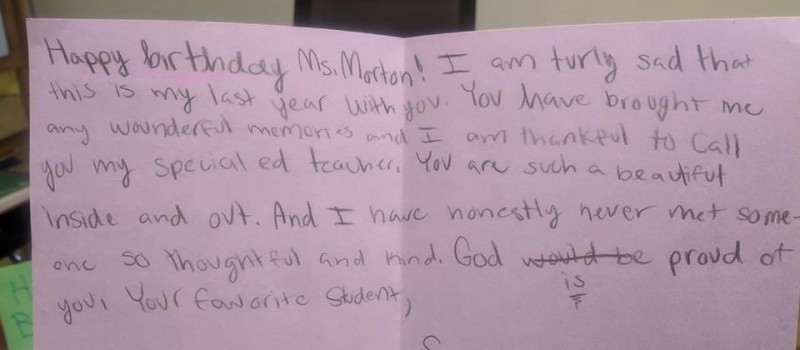 Happy birthday Ms. Morton! I am turly sad that
this is my last year with you. You have brought me
any wounderful memories and I am thankful to call
you my special ed teacher. You are such a beautiful
inside and out. And I have honestly never met some-
one so thoughtful and kind. God would be proud of
is
you, Your favorite student,
H
B